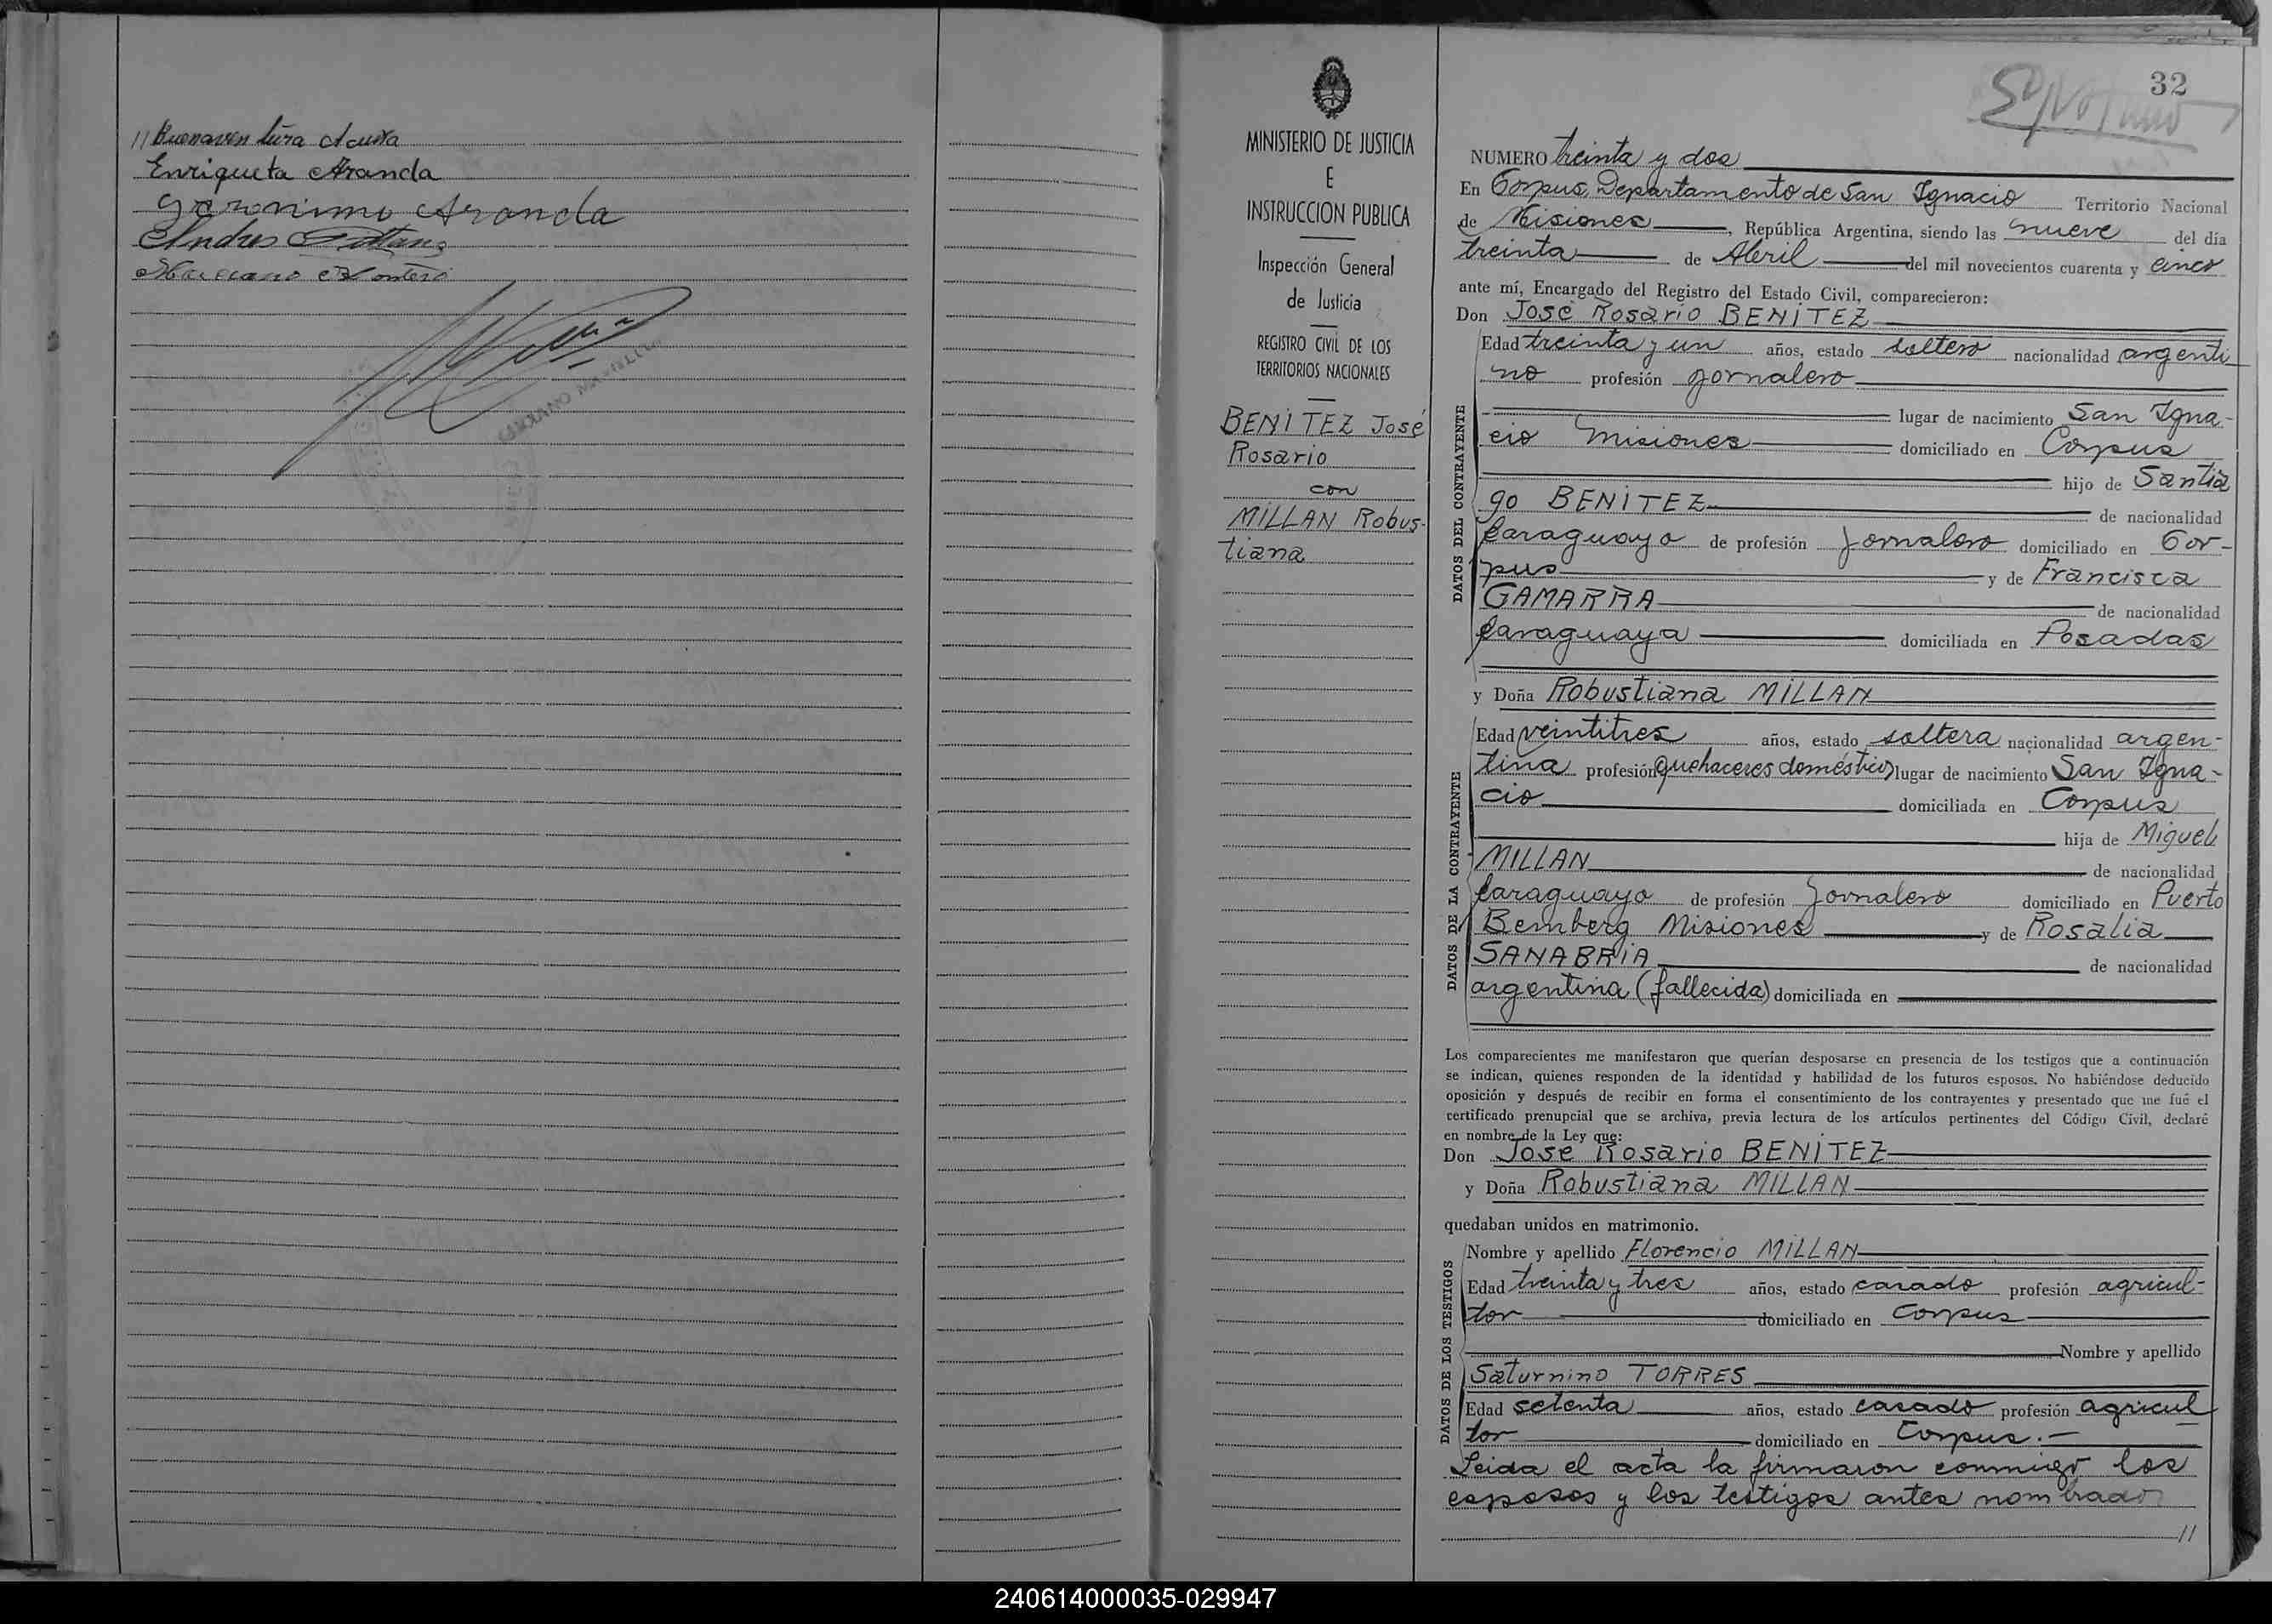 // Buenaventura Acuña
Enriqueta Aranda
Geronimo Aranda
Andres
Marciano Montero
MINISTERIO DE JUSTICIA
E
INSTRUCCION PUBLICA
Inspección General
de Justicia
REGISTRO CIVIL DE LOS
TERRITORIOS NACIONALES
BENITEZ José
Rosario
con
MILLAN Robus-
tiana
32
NUMERO treinta y dos
En Corpus, Departamento de San Ignacio Territorio Nacional
de Misiones, República Argentina, siendo las nueve del día
treinta de Abril del mil novecientos cuarenta y cinco
ante mí, Encargado del Registro del Estado Civil, comparecieron:
Don José Rosario BENITEZ
DATOS DEL CONTRAYENTE
Edad treinta y un años, estado soltero nacionalidad argenti
no profesión jornalero
lugar de nacimiento San Igna-
cio Misiones domiciliado en Corpus
hijo de Santia
go BENITEZ de nacionalidad
Paraguayo de profesión Jornalero domiciliado en Cor-
pus y de Francisca
GAMARRA de nacionalidad
Paraguaya domiciliada en Posadas
y Doña Robustiana MILLAN
DATOS DE LA CONTRAYENTE
Edad veintitres años, estado soltera nacionalidad argen-
tina profesión quehaceres domésticos lugar de nacimiento San Igna-
cio domiciliada en Corpus
hija de Miguel
MILLAN de nacionalidad
Paraguayo de profesión Jornalero domiciliado en Puerto
Bemberg Misiones y de Rosalia
SANABRIA de nacionalidad
argentina (fallecida) domiciliada en
Los comparecientes me manifestaron que querían desposarse en presencia de los testigos que a continuación
se indican, quienes responden de la identidad y habilidad de los futuros esposos. No habiéndose deducido
oposición y después de recibir en forma el consentimiento de los contrayentes y presentado que me fué el
certificado prenupcial que se archiva, previa lectura de los artículos pertinentes del Código Civil, declaré
en nombre de la Ley que:
Don José Rosario BENITEZ
y Doña Robustiana MILLAN
quedaban unidos en matrimonio.
DATOS DE LOS TESTIGOS
Nombre y apellido Florencio MILLAN
Edad treinta y tres años, estado casado profesión agricul-
tor domiciliado en Corpus
Nombre y apellido
Saturnino TORRES
Edad setenta años, estado casado profesión agricul
tor domiciliado en Corpus.-
Leida el acta la firmaron conmigo los
esposos y los testigos antes nombrados
//
240614000035-029947